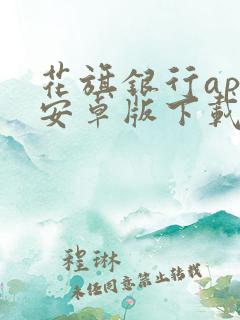 花旗銀行ap
安卓版下載
程琳
未任同意禁止转载